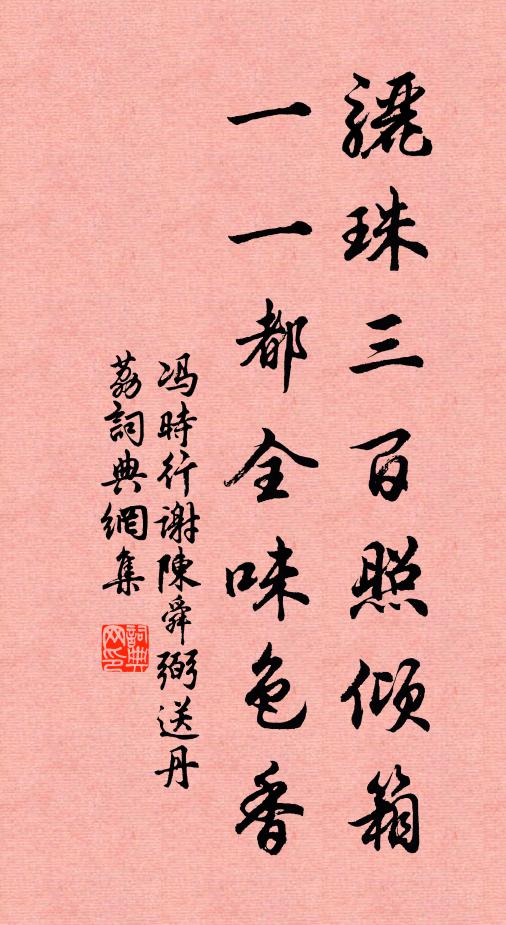 驪珠三百照傾箱
一一都全味色香
冯時行谢陳舜弼送丹
荔詞典網集
詞典网印